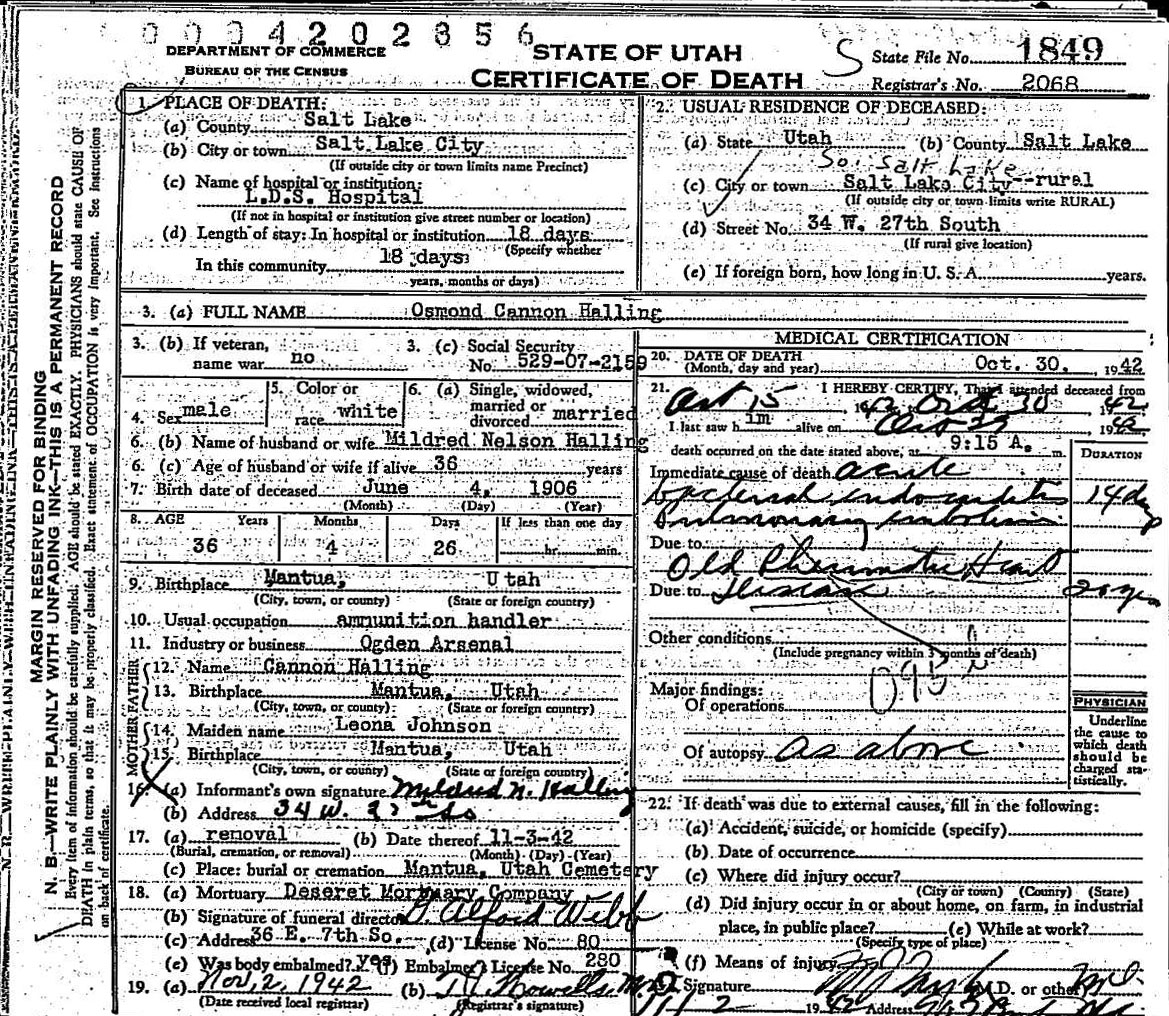 0004202856
DEPARTMENT OF COMMERCE
BUREAU OF THE CENSUS
STATE OF UTAH
CERTIFICATE OF DEATH
S
State File No. 1849
Registrar's No. 2068
MARGIN RESERVED FOR BINDING
N. B.—WRITE PLAINLY WITH UNFADING INK—THIS IS A PERMANENT RECORD
Every item of information should be carefully supplied. AGE should be stated EXACTLY. PHYSICIANS should state CAUSE OF
DEATH in plain terms, so that it may be properly classified. Exact statement of OCCUPATION is very important. See instructions
on back of certificate.
1. PLACE OF DEATH:
(a) County Salt Lake
(b) City or town Salt Lake City
(If outside city or town limits name Precinct)
(c) Name of hospital or institution:
L.D.S. Hospital
(If not in hospital or institution give street number or location)
(d) Length of stay: In hospital or institution 18 days
(Specify whether
In this community 18 days
years, months or days)
2. USUAL RESIDENCE OF DECEASED:
(a) State Utah (b) County Salt Lake
So. Salt Lake
(c) City or town Salt Lake City--rural
(If outside city or town limits write RURAL)
(d) Street No. 34 W. 27th South
(If rural give location)
(e) If foreign born, how long in U. S. A. years.
3. (a) FULL NAME Osmond Cannon Halling
3. (b) If veteran,
name war no
3. (c) Social Security
No. 529-07-2159
4. Sex male
5. Color or
race white
6. (a) Single, widowed,
married or
divorced married
6. (b) Name of husband or wife Mildred Nelson Halling
6. (c) Age of husband or wife if alive 36 years
7. Birth date of deceased June 4, 1906
(Month) (Day) (Year)
8. AGE Years Months Days If less than one day
36 4 26 hr. min.
9. Birthplace Mantua, Utah
(City, town, or county) (State or foreign country)
10. Usual occupation ammunition handler
11. Industry or business Ogden Arsenal
FATHER
12. Name Cannon Halling
13. Birthplace Mantua, Utah
(City, town, or county) (State or foreign country)
MOTHER
14. Maiden name Leona Johnson
15. Birthplace Mantua, Utah
(City, town, or county) (State or foreign country)
16. (a) Informant's own signature Mildred N. Halling
(b) Address 34 W. 27th So
17. (a) removal (b) Date thereof 11-3-42
(Burial, cremation, or removal) (Month) (Day) (Year)
(c) Place: burial or cremation Mantua, Utah Cemetery
18. (a) Mortuary Deseret Mortuary Company
(b) Signature of funeral director Alford Webb
(c) Address 36 E. 7th So. (d) License No. 80
(e) Was body embalmed? yes (f) Embalmer's License No. 280
19. (a) Nov. 2, 1942 (b) M.D.
(Date received local registrar) (Registrar's signature)
MEDICAL CERTIFICATION
20. DATE OF DEATH
(Month, day and year) Oct. 30, 1942
21. I HEREBY CERTIFY, That I attended deceased from
Oct 15 1942 Oct 30 1942
I last saw him alive on Oct 1942
death occurred on the date stated above, at 9:15 A. m.
DURATION
Immediate cause of death acute
bacterial endocarditis 14 days
Pulmonary embolism
Due to
Old Rheumatic Heart
Due to Disease 20 yrs
Other conditions
(Include pregnancy within 3 months of death)
Major findings:
Of operations
Of autopsy as above
PHYSICIAN
Underline
the cause to
which death
should be
charged sta-
tistically.
22. If death was due to external causes, fill in the following:
(a) Accident, suicide, or homicide (specify)
(b) Date of occurrence
(c) Where did injury occur?
(City or town) (County) (State)
(d) Did injury occur in or about home, on farm, in industrial
place, in public place? (e) While at work?
(Specify type of place)
(f) Means of injury
Signature M.D. or other MD.
11-2 1942 Address